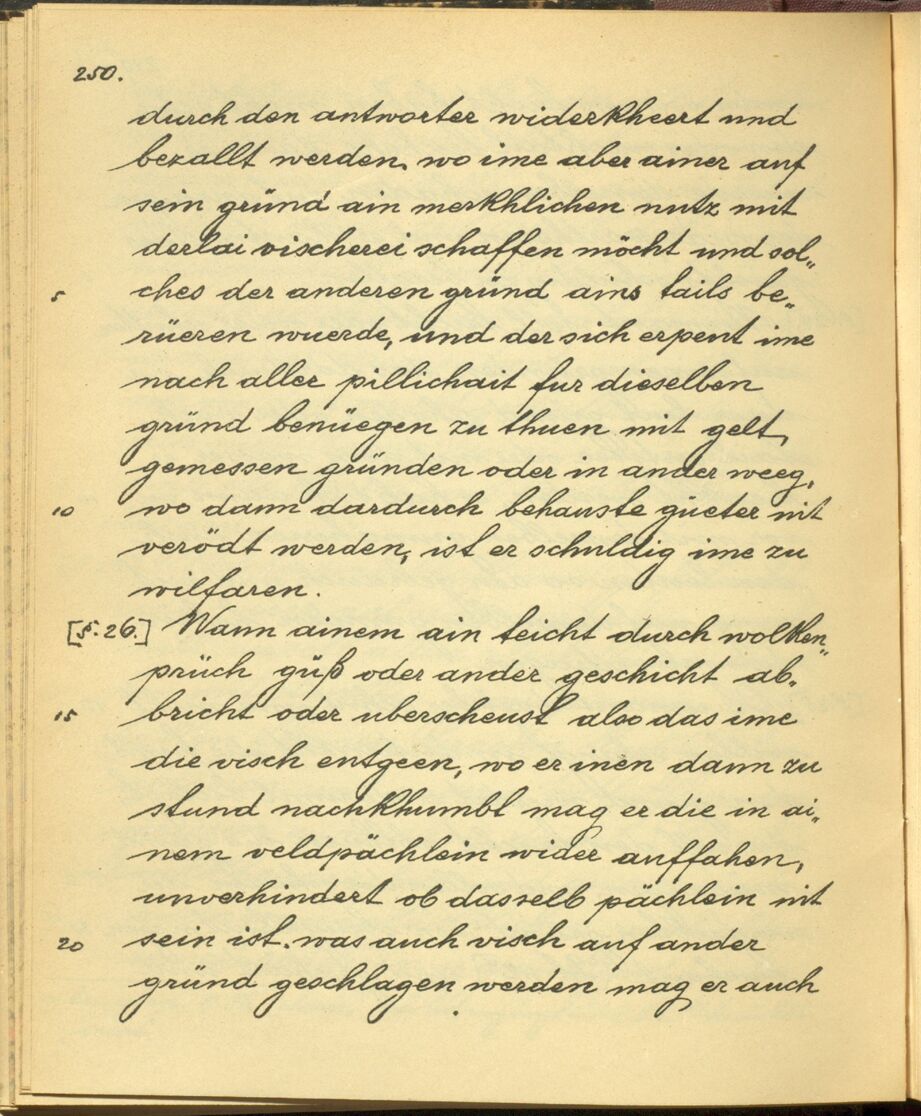 250.
durch den antworter widerkheert und
bezallt werden, wo ime aber ainer auf
sein gründ ain merkhlichen nutz mit
derlai vischerei schaffen möcht und sol„
5 ches der anderen gründ ains tails be„
rüeren wuerde, und der sich erpent ime
nach aller pillichait fur dieselben
gründ benüegen zu thuen mit gelt,
gemessen gründen oder in ander weeg,
10 wo dann dardurch behauste güeter nit
verödt werden, ist er schuldig ime zu
wilfaren.
[§. 26.] Wann ainem ain teicht durch wolken„
prüch güß oder ander geschicht ab„
15 bricht oder uberscheust also das ime
die visch entgeen, wo er inen dann zu
stund nachkhumbt mag er die in ai„
nem veldpächlein wider auffahen,
unverhindert ob dasselb pächlein nit
20 sein ist. was auch visch auf ander
gründ geschlagen werden mag er auch